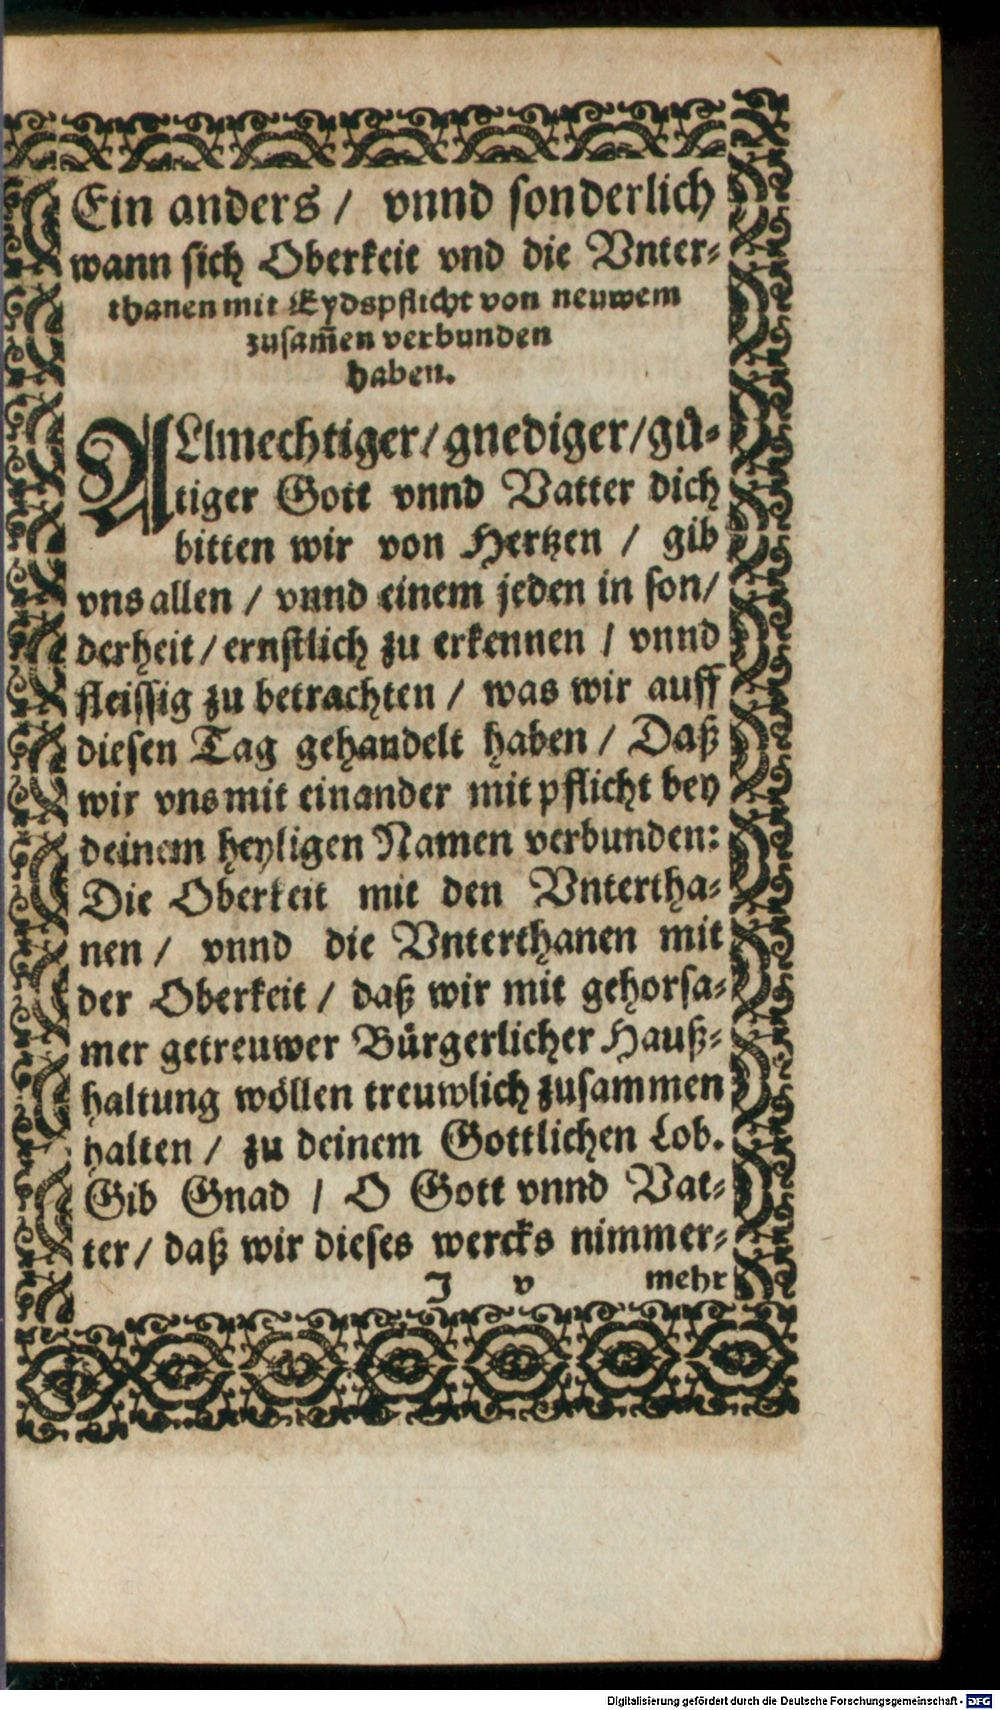 Ein anders / vnnd sonderlich
wann sich Oberkeit vnd die Vnter-
thanen mit Eydspflicht von neuwem
zusam̃en verbunden
haben.
ALlmechtiger / gnediger / guͤ-
tiger Gott vnnd Vatter dich
bitten wir von Hertzen / gib
vns allen / vnnd einem jeden in son /
derheit / ernstlich zu erkennen / vnnd
fleissig zu betrachten / was wir auff
diesen Tag gehandelt haben / Daß
wir vns mit einander mit pflicht bey
deinem heyligen Namen verbunden:
Die Oberkeit mit den Vntertha-
nen / vnnd die Vnterthanen mit
der Oberkeit / daß wir mit gehorsa-
mer getreuwer Buͤrgerlicher Hauß-
haltung woͤllen treuwlich zusammen
halten / zu deinem Gottlichen Lob.
Gib Gnad / O Gott vnnd Vat-
ter / daß wir dieses wercks nimmer-
J v mehr
Digitalisierung gefördert durch die Deutsche Forschungsgemeinschaft - DFG